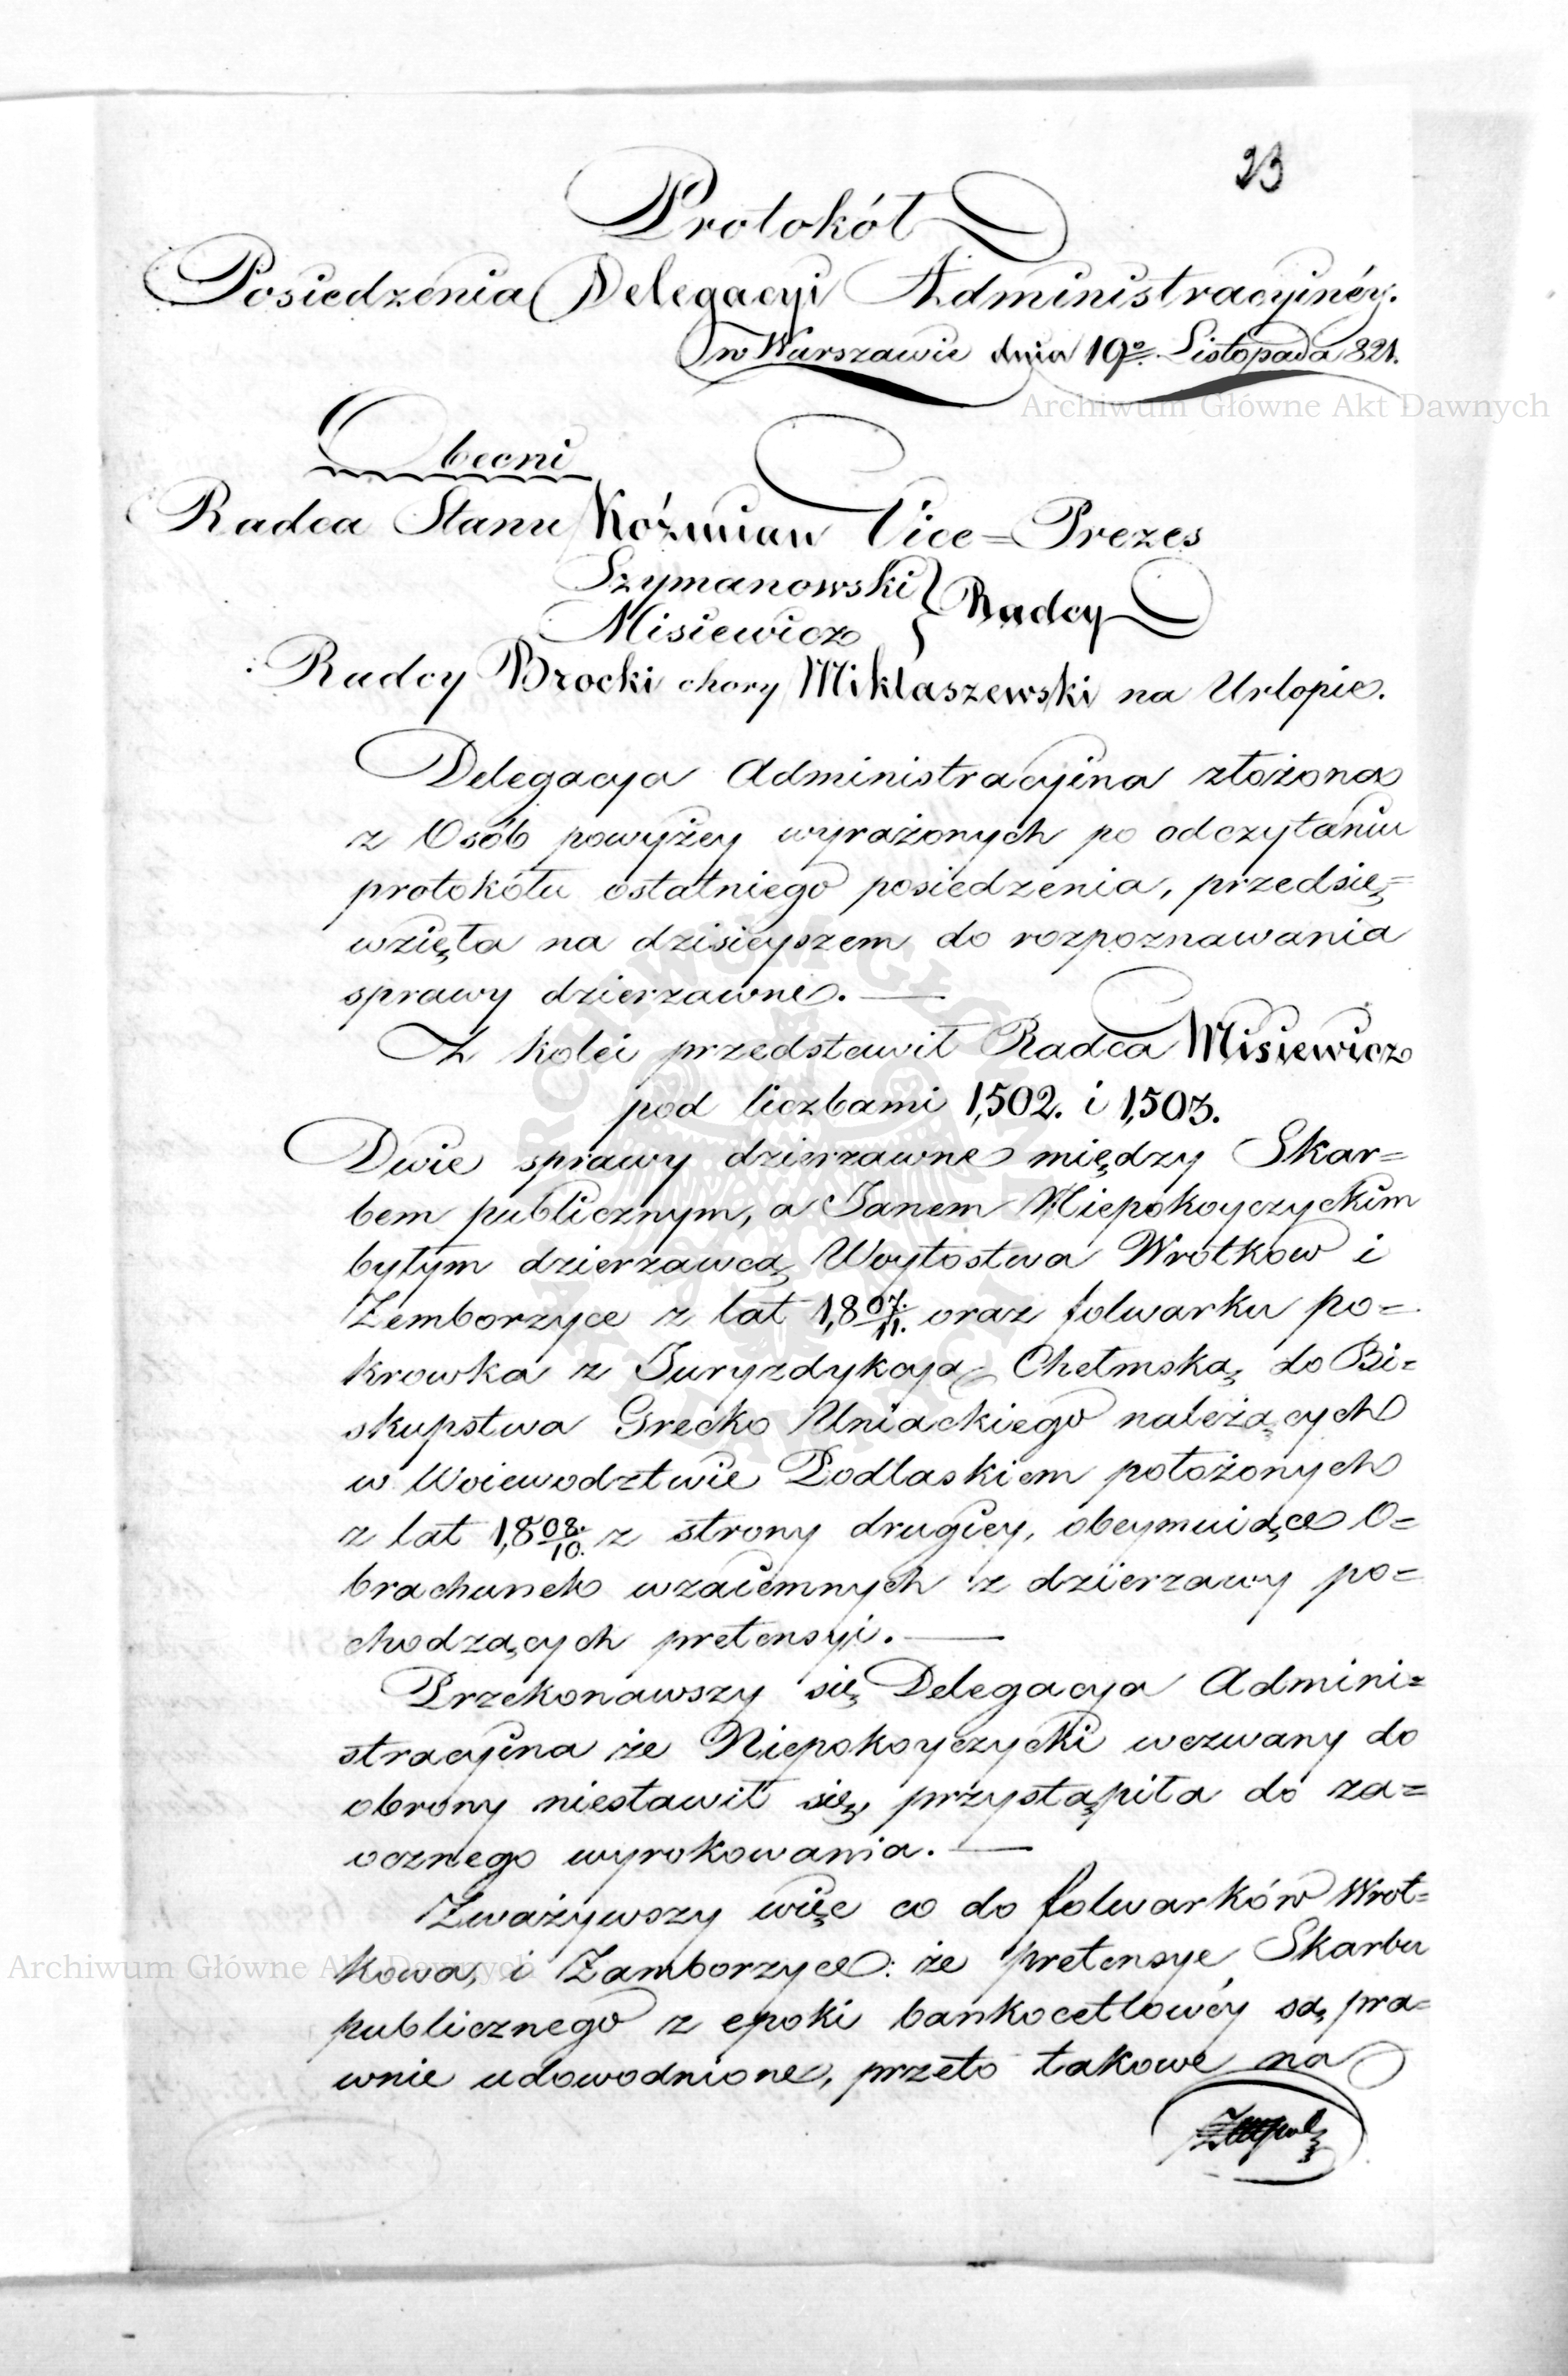 23
Protokół
Posiedzenia Delegacyi Administracyinéy.
w Warszawie dnia 19º. Listopada 821.
Archiwum Główne Akt Dawnych
Obecni
Radca Stanu Koźmian Vice=Prezes
Szymanowski } Radcy
Misiewicz
Radcy Brocki chory Miklaszewski na Urlopie.
Delegacya Administracyina złożona
z Osób powyżey wyrażonych po odczytaniu
protokółu ostatniego posiedzenia, przedsię=
wzięła na dzisieyszem do rozpoznawania
sprawy dzierzawne. —
Z kolei przedstawił Radca Misiewicz
pod liczbami 1,502. i 1,503.
Dwie sprawy dzierzawne między Skar=
bem publicznym, a Janem Niepokoyczyckim
byłym dzierzawcą Woytostwa Wrotkow i
Zemborzyce z lat 1,807./11. oraz folwarku po=
krowka z Juryzdykcyą Chełmską do Bi=
skupstwa Grecko Uniackiego należących
w Woiewodztwie Podlaskiem położonych
z lat 1,808./10. z strony drugiey, obeymuiące O=
brachunek wzaiemnych z dzierzawy po=
chodzących pretensyi. —
Przekonawszy się Delegacya Admini=
stracyina że Niepokoyczycki wezwany do
obrony niestawił się, przystąpiła do za=
ocznego wyrokowania. —
Zważywszy więc co do folwarków Wrot=
kowa, i Zamborzyce: że pretensye Skarbu
Archiwum Główne Akt Dawnych
publicznego z epoki bankocetlowéy są pra=
wnie udowodnione, przeto takowe na